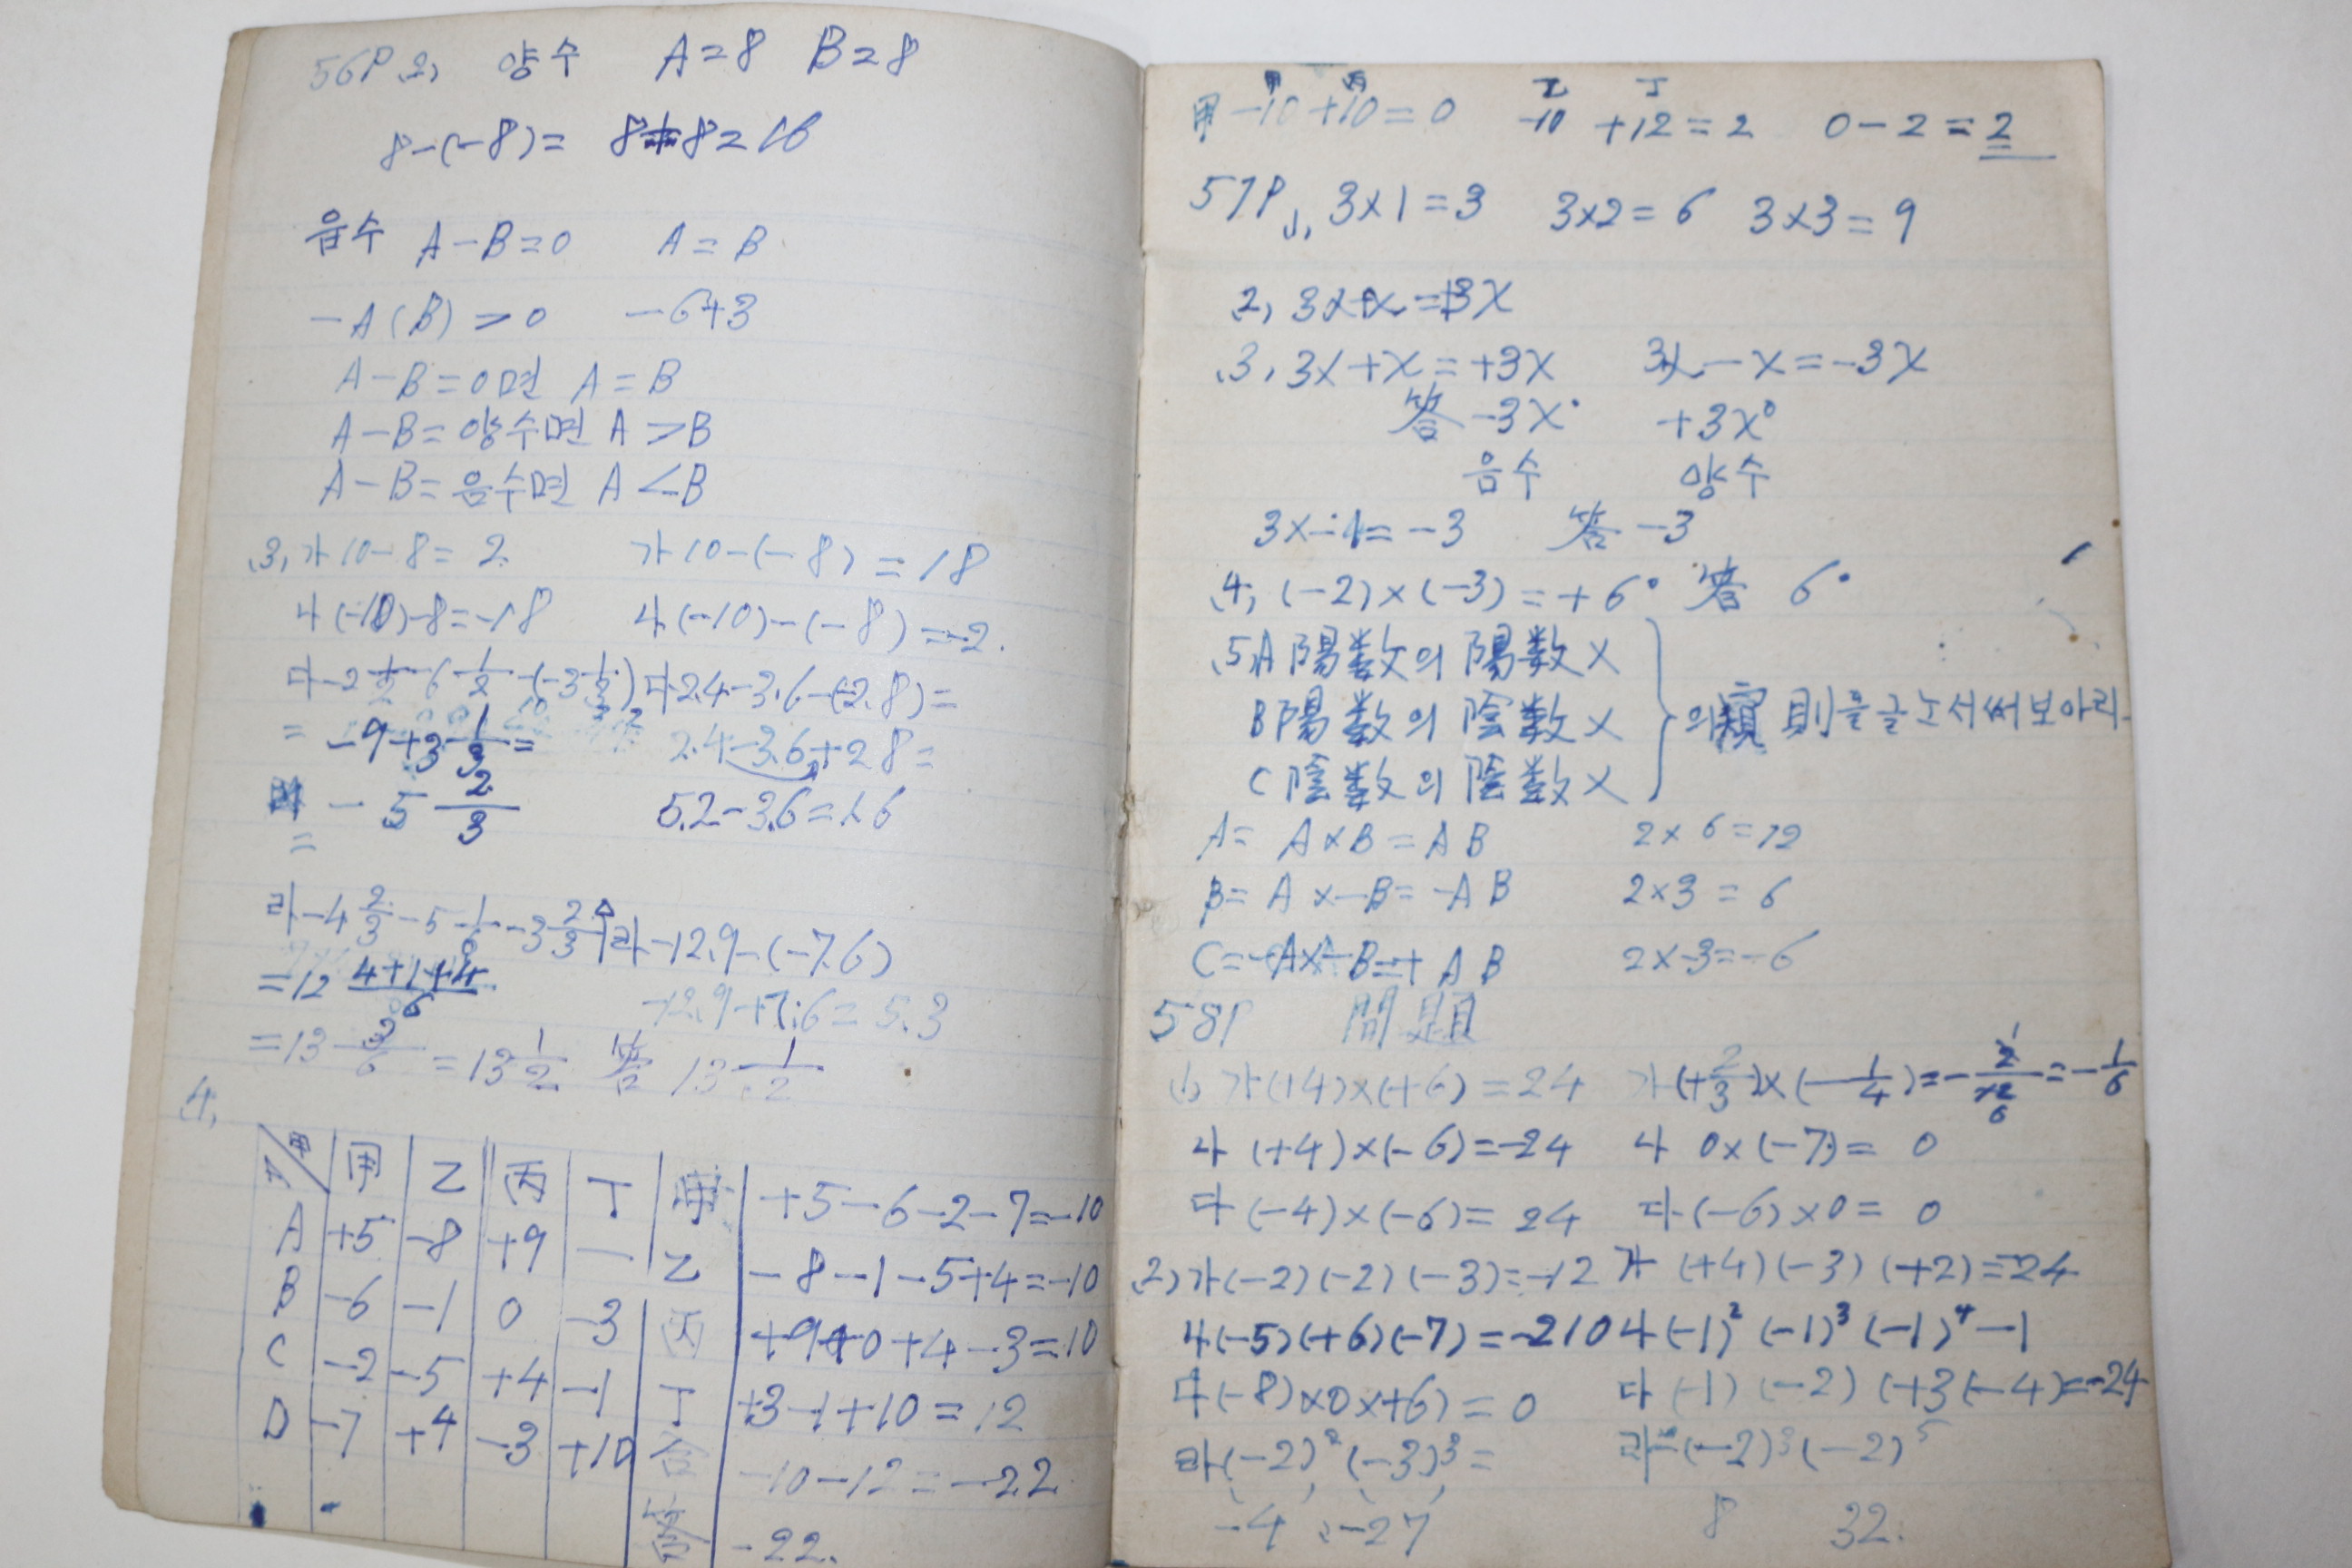 56P 2, 양수 A=8 B=8
8-(-8)= 8+8=16
음수 A-B=0 A=B
-A(B)>0 -6+3
A-B=0면 A=B
A-B=양수면 A>B
A-B=음수면 A<B
3, 가 10-8=2. 가 10-(-8)=18
나 (-10)-8=-18 나 (-10)-(-8)=-2.
다 -2 1/2 -6 1/2 -(-3 1/3) 다 2.4-3.6-(-2.8)=
= -9+3 1/3 = 2.4-3.6+2.8=
= -5 2/3 5.2-3.6=1.6
라 -4 2/3 -5 1/6 -3 2/3 라 -12.9-(-7.6)
=12 4+1+4/6 -12.9+7.6=5.3
=13 3/6 =13 1/2 答 13 1/2
4,
甲 乙 丙 丁 甲 +5-6-2-7=-10
A +5 -8 +9 - 乙 -8-1-5+4=-10
B -6 -1 0 -3 丙 +9+0+4-3=10
C -2 -5 +4 -1 丁 +3-1+10=12
D -7 +4 -3 +10 合 -10-12=-22
答 -22.
甲 丙 乙 丁
甲 -10+10=0 -10 +12=2 0-2=2
57P 1, 3x1=3 3x2=6 3x3=9
2, 3x+x=+3x
3, 3x+x=+3x 3x-x=-3x
答 -3x° +3x°
음수 양수
3x-1=-3 答 -3
4, (-2)x(-3)=+6° 答 6°
5, A 陽数의 陽数 x
B 陽数의 陰数 x 의 則을 글노서 써보아라
C 陰数의 陰数 x
A= AxB=AB 2x6=12
B= Ax-B=-AB 2x3=6
C=-Ax-B=+AB 2x-3=-6
58P 問題
1, 가 (+4)x(+6)=24 가 (+2/3)x(-1/4)=-2/12=-1/6
나 (+4)x(-6)=-24 나 0x(-7)=0
다 (-4)x(-6)=24 다 (-6)x0=0
2) 가 (-2)(-2)(-3)=-12 가 (+4)(-3)(+2)=-24
나 (-5)(+6)(-7)=-210 나 (-1)² (-1)³ (-1)⁴ -1
다 (-8)x0x+6)=0 다 (-1)(-2)(+3(-4)=-24
라 (-2)²(-3)³= 라 (-2)³(-2)⁵
-4 -27 8 32.